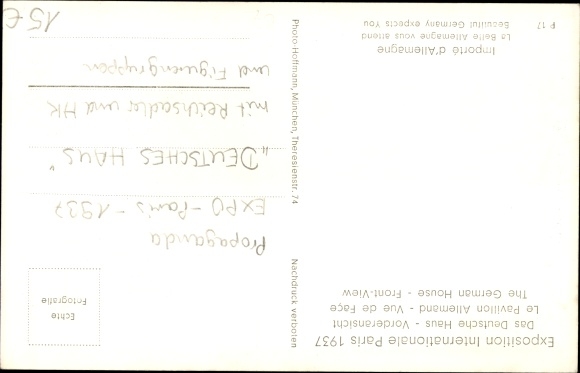 Exposition Internationale Paris 1937
Das Deutsche Haus - Vorderansicht
Le Pavillon Allemand - Vue de Façe
The German House - Front-View
Echte
Fotografie
Propaganda
EXPO - Paris - 1937
„DEUTSCHES HAUS"
mit Reichsadler und HK
und Figurengruppen
15€
Photo-Hoffmann, München, Theresienstr. 74
Nachdruck verboten
Importé d'Allemagne
La Belle Allemagne vous attend
Beautiful Germany expects You
P 17